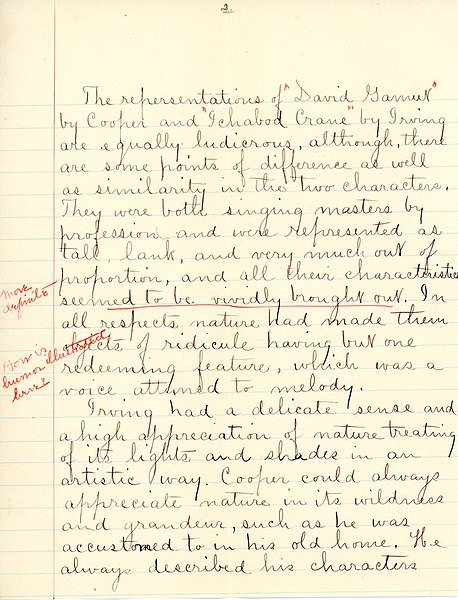 2.
The repersentations of "David Gamut"
by Cooper and "Ichabod Crane" by Irving
are equally ludicrous, although, there
are some points of difference as well
as similarity in the two characters.
They were both singing masters by
profession and were represented as
tall, lank, and very much out of
proportion, and all their characteristics
more
definite
seemed to be vividly brought out. In
all respects, nature had made them
objects of ridicule having but one
How is
humor illustrated
here?
redeeming feature, which was a
voice attuned to melody.
Irving had a delicate sense and
a high appreciation of nature treating
of its lights and shades in an
artistic way. Cooper could always
appreciate nature in its wildness
and grandeur, such as he was
accustomed to in his old home. He
always described his characters